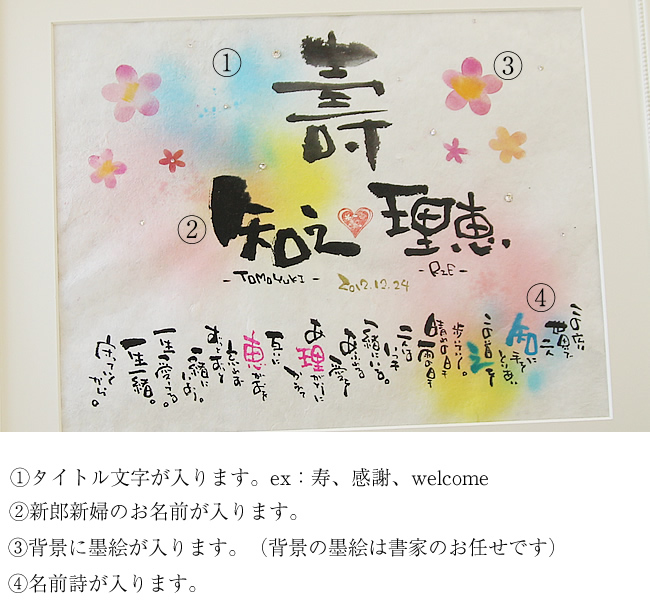 ①
壽
③
② 知之 理恵
- TOMOYUKI -
- RIE -
2012.12.24
④
この広い
世界で
二人
知
手を
とりあい
歩いていく
晴れの日も
雨の日も
いつも
一緒にいる。
あ理がとう
互いに
恵
ずっとずっと
一緒に
いよう。
一生愛する。
一生一緒。
守っていくから。
①タイトル文字が入ります。ex：寿、感謝、welcome
②新郎新婦のお名前が入ります。
③背景に墨絵が入ります。（背景の墨絵は書家のお任せです）
④名前詩が入ります。